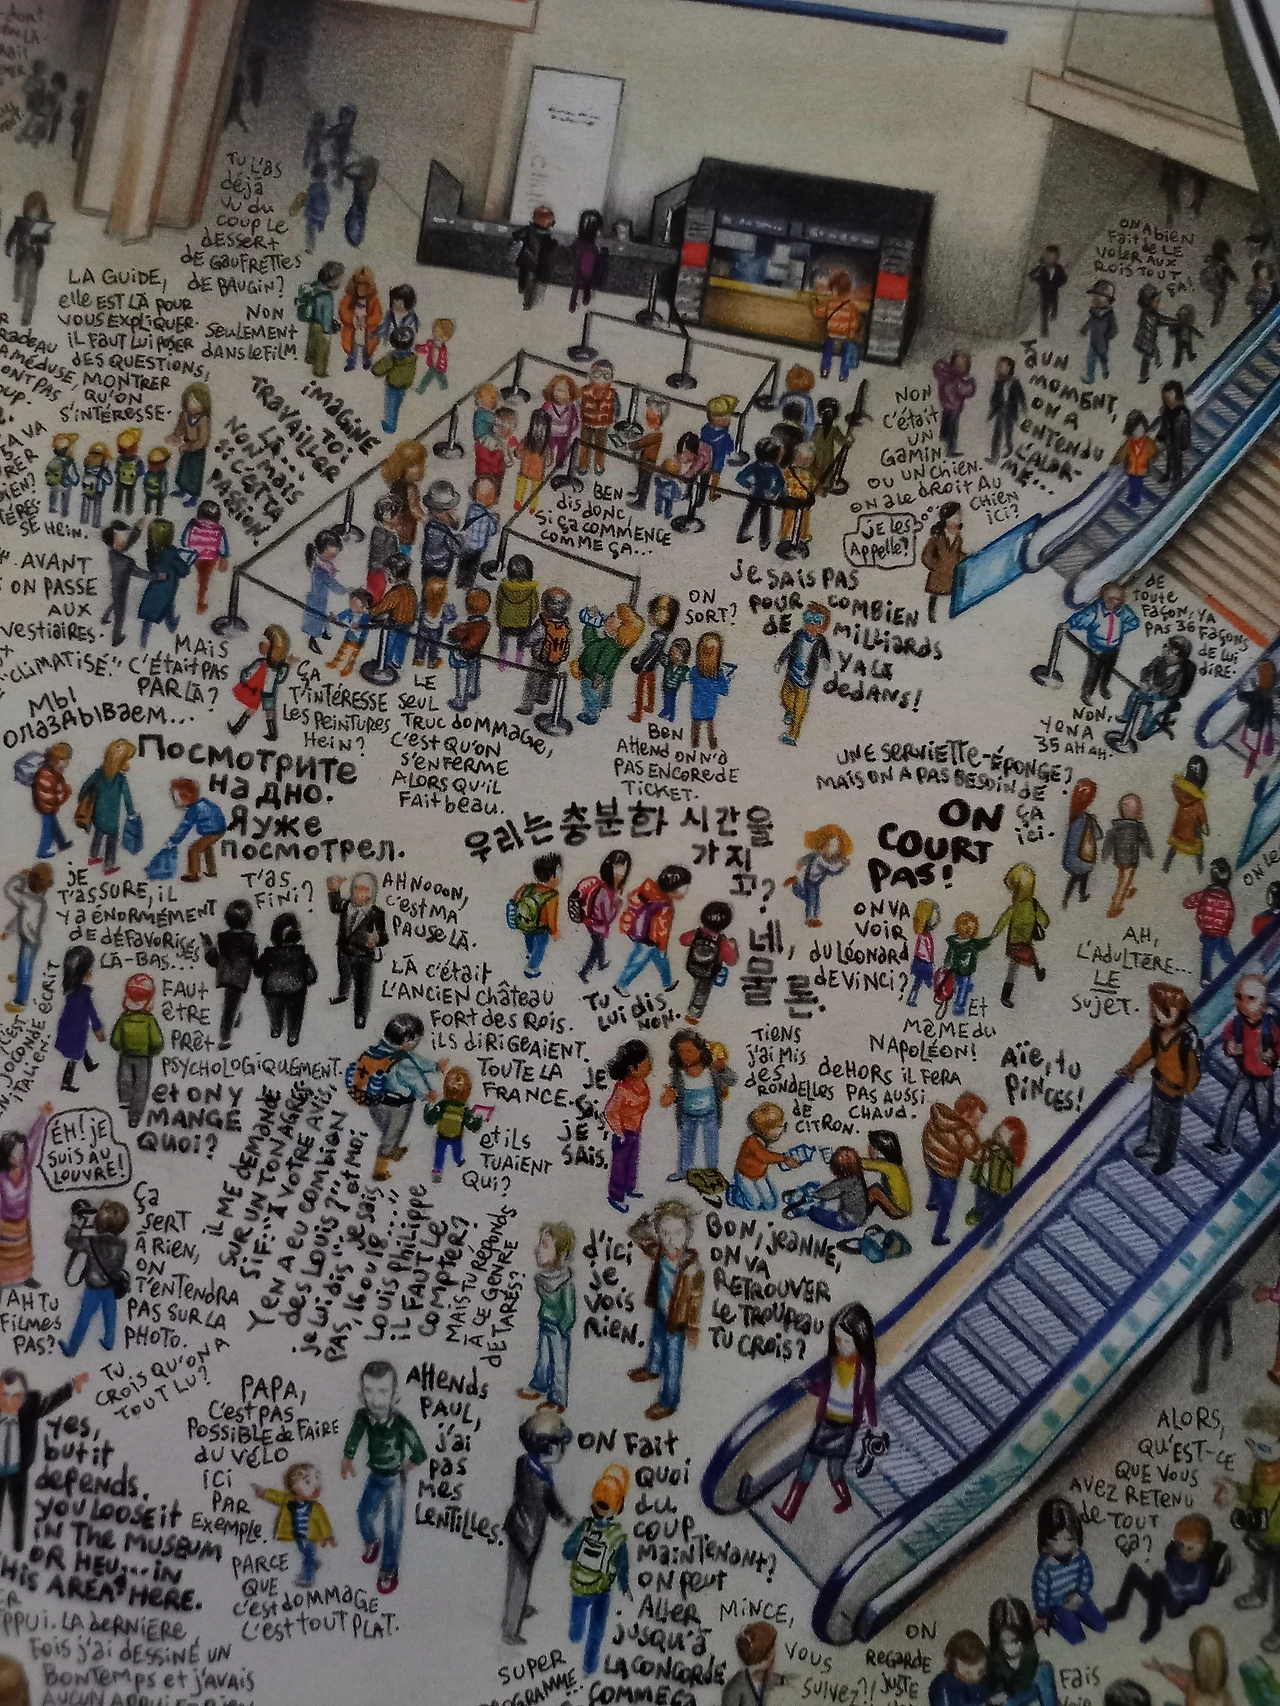 TU L'AS
déjà
VU DU
COUP LE
DESSERT
DE GAUFRETTES
DE BAUGIN?
NON
SEULEMENT
DANS LE FILM
LA GUIDE,
elle EST LÀ POUR
VOUS EXPLIQUER.
IL FAUT LUI POSER
DES QUESTIONS,
MONTRER
QU'ON
S'INTÉRESSE.
IMAGINE
TOI,
TRAVAILLER
LÀ...
NON MAIS
SI C'EST TA
PASSION.
ON A bien
Fait de LE
VOLER AUX
ROIS TOUT
ÇA!
À UN
MOMENT,
ON A
ENTENDU
L'ALAR-
ME...
NON
C'était
UN
GAMIN
OU UN CHIEN.
ON A LE dROIT AU
CHIEN
ICI?
je les
Appelle?
BEN
dis donc,
si ÇA COMMENCE
COMME ÇA...
AVANT
ON PASSE
AUX
VESTIAIRES.
"CLIMATISÉ."
MAIS
C'ÉTAIT PAS
PAR LÀ?
МЫ
ОПАЗДЫВАЕМ...
ÇA
T'INTÉRESSE
LES PEINTURES
HEIN?
LE
SEUL
TRUC DOMMAGE,
C'est QU'ON
S'ENFERME
ALORS QU'IL
FAIT beau.
ON
SORT?
BEN
AttEnd ON N'A
PAS ENCORE dE
TICKET.
JE SAIS PAS
POUR COMBIEN
DE MILLIARDS
Y A LÀ
dEDANS!
DE
TOUTE
FAÇON, YA
PAS 36 FAÇONS
DE LUI
DIRE.
NON,
Y EN A
35 AH AH.
Посмотрите
на дно.
Я уже
посмотрел.
우리는 충분한 시간을
가지
고?
네,
물론.
UNE SERVIETTE-ÉPONGE?
MAIS ON A PAS BESOIN DE
ÇA
ici.
ON
COURT
PAS!
JE
T'ASSURE, IL
Y a ÉNORMÉMENT
DE DÉFAVORISÉS
LÀ-BAS...
T'AS
FINI?
AH NOOON,
C'EST MA
PAUSE LÀ.
ON VA
VOIR
du LÉONARD
dE VINCI?
AH,
L'ADULTÈRE...
LE
SUJET.
FAUT
ÊTRE
PRÊT
PSYCHOLOGIQUEMENT.
et ON Y
MANGE
QUOI?
LÀ C'était
L'ANCIEN CHÂTEAU
FORT DES ROIS.
ILS DIRIGEAIENT
TOUTE LA
FRANCE.
et ILS
TUAIENT
QUI?
TU
LUI DIS
NON.
JE
SAIS,
JE
SAIS.
TIENS
j'ai MIS
dES
RONDELLES
DE
CITRON.
Et
MÊME du
NAPOLÉON!
dEHORS IL FERA
PAS AUSSI
CHAUD.
Aïe, tu
PINCES!
ÉH! JE
SUIS AU
LOUVRE!
Ça
SERT
À RIEN,
ON
T'ENTENDRA
PAS SUR LA
PHOTO.
AH TU
FILMES
PAS?
IL ME DEMANDE
SUR UN TON AGRES-
SIF: "À VOTRE AVIS,
Y EN A EU COMBIEN
des LOUIS?"... et MOI
je LUI dis... JE SAIS
PAS, 16 OU 18...
LOUIS PHILIPPE
IL FAUT LE
COMPTER?
MAIS TU RÉPONDS
À CE GENRE
DE TARÉS?
d'ici
je
VOIS
RIEN.
BON, JEANNE,
ON VA
RETROUVER
LE TROUPEAU
TU CROIS?
TU
CROIS QU'ON A
TOUT LU?
yes,
but it
depends.
YOU LOOSE it
IN THE MUSEUM
OR HEU... IN
THIS AREA? HERE.
PAPA,
C'est PAS
POSSIBLE de FAIRE
du VÉLO
ICI
PAR
EXEMPLE.
PARCE
QUE
C'est dOMMAGE
C'est TOUT PLAT.
AttENds
PAUL,
j'ai
PAS
MES
LENTILLES.
ON Fait
QUOI
du
COUP
MAINTENANT?
ON PEUT
Aller
JUSQU'À
LA CONCORDE
COMME ÇA
ALORS,
QU'EST-CE
QUE VOUS
AVEZ RETENU
de TOUT
ÇA?
APPUI. LA dERNIÈRE
FOIS j'ai dESSINÉ UN
BONTEMPS et j'AVAIS
AUCUN APPUI
SUPER
PROGRAMME...
MINCE,
VOUS
SUIVEZ?!
ON
REGARDE
JUSTE
FAIS